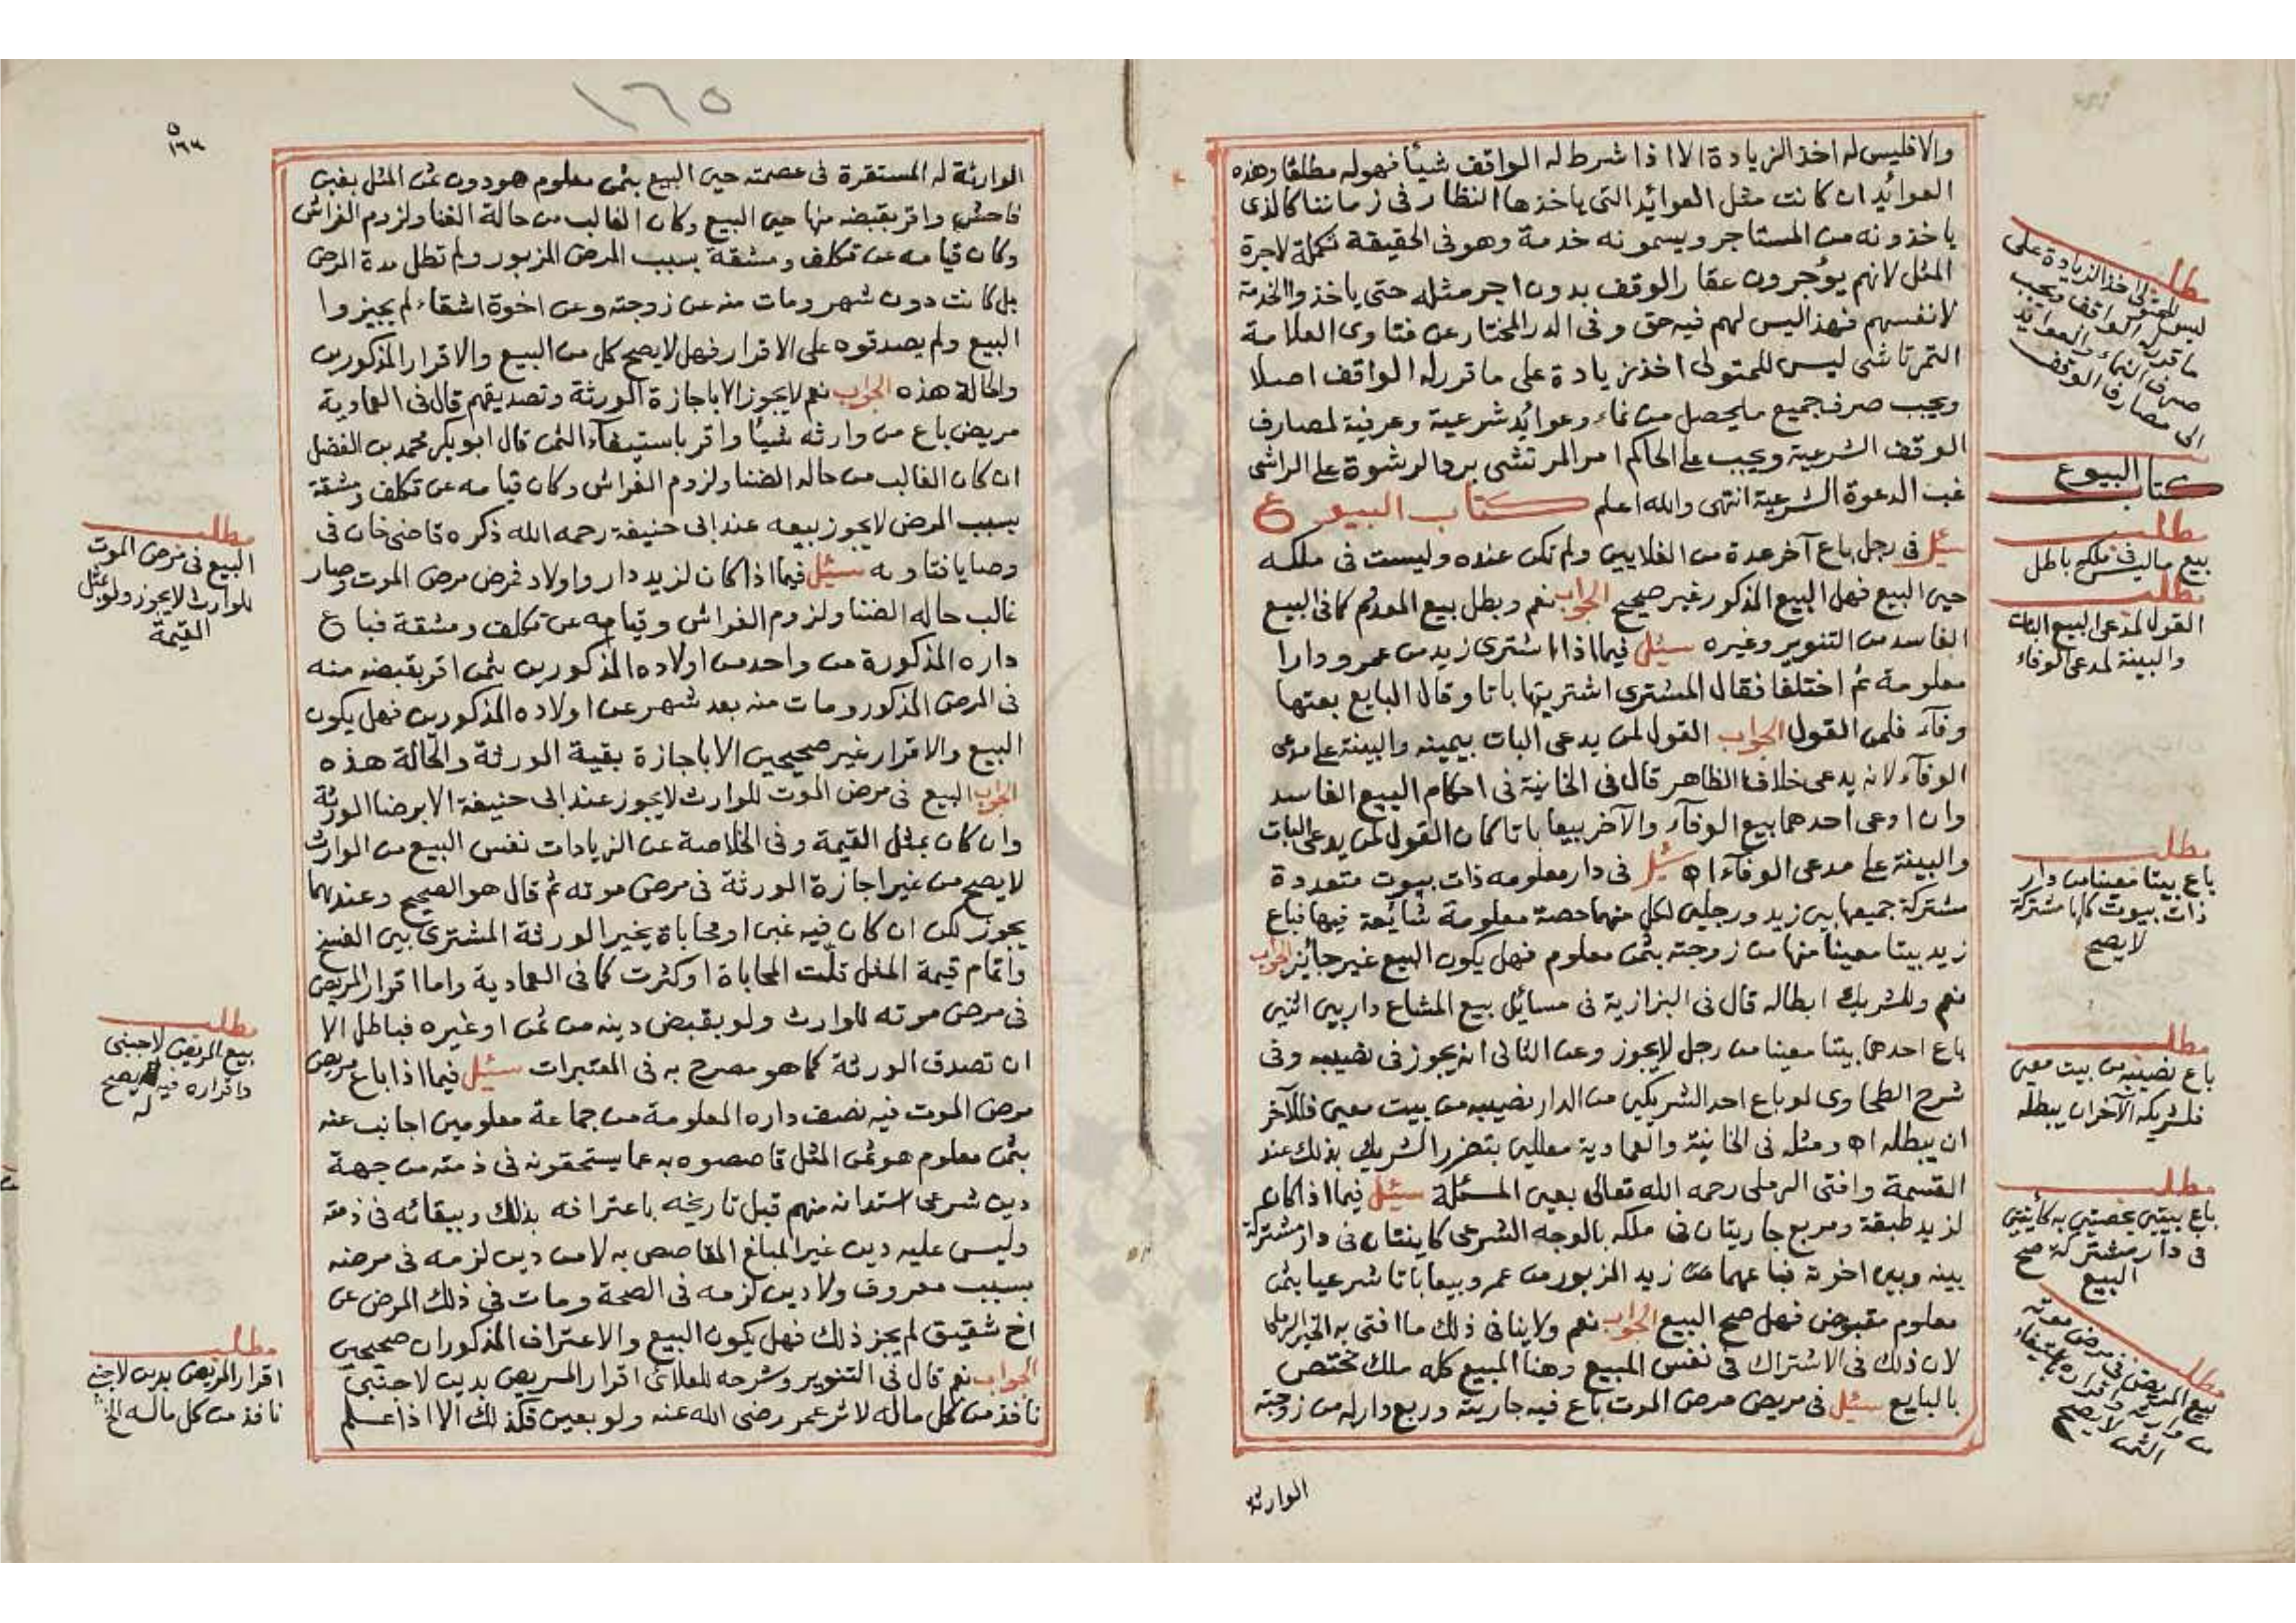 والا فليس له اخذ الزيادة الا اذا شرط له الواقف شيئا فهو له مطلقا وهذه
العوائد ان كانت مثل العوائد التى ياخذها النظار فى زماننا كالذى
ياخذونه من المستاجر ويسمونه خدمة وهو فى الحقيقة تكملة لاجرة
المثل لانهم يؤجرون عقار الوقف بدون اجر مثله حتى ياخذوا الخدمة
لانفسهم فهذا ليس لهم فيه حق وفى الدر المختار عن فتاوى العلامة
التمرتاشى ليس للمتولى اخذ زيادة على ما قرر له الواقف اصلا
ويجب صرف جميع ما يحصل من نماء وعوائد شرعية وعرفية لمصارف
الوقف الشرعية ويجب على الحاكم امر المرتشى برد الرشوة على الراشى
غب الدعوة الشرعية انتهى والله اعلم كتاب البيوع
سئل فى رجل باع آخر عدة من الغلايين ولم تكن عنده وليست فى ملكه
حين البيع فهل البيع المذكور غير صحيح الجواب نعم وبطل بيع المعدوم كما فى البيع
الفاسد من التنوير وغيره سئل فيما اذا اشترى زيد من عمرو دارا
معلومة ثم اختلفا فقال المشترى اشتريتها باتا وقال البايع بعتها
وفآء فلمن القول الجواب القول لمن يدعى البات بيمينه والبينة على مدعى
الوفآء لانه يدعى خلاف الظاهر قال فى الخانية فى احكام البيع الفاسد
وان ادعى احدهما بيع الوفآء والآخر بيعا باتا كان القول لمن يدعى البات
والبينة على مدعى الوفآء اه سئل فى دار معلومه ذات بيوت متعددة
مشتركة جميعها بين زيد ورجلين لكل منهما حصة معلومة شائعة فيها فباع
زيد بيتا معينا منها من زوجته بثمن معلوم فهل يكون البيع غير جائز الجواب
نعم وللشريك ابطاله قال فى البزازية فى مسائل بيع المشاع دار بين اثنين
باع احدهما بيتا معينا من رجل لا يجوز وعن الثانى انه يجوز فى نصيبه وفى
شرح الطحاوى لو باع احد الشريكين من الدار نصيبه من بيت معين فللآخر
ان يبطله اه ومثله فى الخانية والعمادية معللين بتضرر الشريك بذلك عند
القسمة وافتى الرملى رحمه الله تعالى بعين المسئلة سئل فيما اذا كان
لزيد طبقة ومربع جاريتان فى ملكه بالوجه الشرعى كاينتان فى دار مشتركة
بينه وبين اخوته فباعهما زيد المزبور من عمرو بيعا باتا شرعيا بثمن
معلوم مقبوض فهل صح البيع الجواب نعم ولا ينافى ذلك ما افتى به الخير الرملى
لان ذلك فى الاشتراك فى نفس المبيع وهنا المبيع كله ملك مختص
بالبايع سئل فى مريض مرض الموت باع فيه جاريته وربع دار له من زوجته
الوارثة
مطلب
ليس للمتولى اخذ الزيادة على
ما قرر له الواقف ويجب
صرف النماء والعوايد
الى مصارف الوقف
كتاب البيوع
مطلب
بيع ما ليس فى ملكه باطل
مطلب
القول لمدعى البيع البات
والبينة لمدعى الوفاء
مطلب
باع بيتا معينا من دار
ذات بيوت كلها مشتركة
لا يصح
مطلب
باع نصيبه من بيت معين
فلشريكه الآخر ان يبطله
مطلب
باع بيتين مختصين به كائنين
فى دار مشتركة صح
البيع
مطلب
بيع المريض فى مرض موته
من وارثه واقراره باستيفاء
الثمن لا يصح
١٦٥
الوارثة له المستقرة فى عصمته حين البيع بثمن معلوم هو دون ثمن المثل بغبن
فاحش واقر بقبضه منها حين البيع وكان الغالب من حالة الضنا ولزوم الفراش
وكان قيامه عن تكلف ومشقة بسبب المرض المزبور ولم تطل مدة المرض
بل كانت دون شهر ومات منه عن زوجته وعن اخوة اشقاء لم يجيزوا
البيع ولم يصدقوه على الاقرار فهل لا يصح كل من البيع والاقرار المذكورين
والحالة هذه الجواب نعم لا يجوز الا باجازة الورثة وتصديقهم قال فى العمادية
مريض باع من وارثه شيئا واقر باستيفآء الثمن قال ابو بكر محمد بن الفضل
ان كان الغالب من حاله الضنا ولزوم الفراش وكان قيامه عن تكلف ومشقة
بسبب المرض لا يجوز بيعه عند ابى حنيفة رحمه الله ذكره قاضى خان فى
وصايا فتاويه سئل فيما اذا كان لزيد دار واولاد فمرض مرض الموت وصار
غالب حاله الضنا ولزوم الفراش وقيامه عن تكلف ومشقة فباع
داره المذكورة من واحد من اولاده المذكورين بثمن اقر بقبضه منه
فى المرض المذكور ومات منه بعد شهر عن اولاده المذكورين فهل يكون
البيع والاقرار غير صحيحين الا باجازة بقية الورثة والحالة هذه
الجواب البيع فى مرض الموت للوارث لا يجوز عند ابى حنيفة الا برضا الورثة
وان كان بمثل القيمة وفى الخلاصة عن الزيادات نفس البيع من الوارث
لا يصح من غير اجازة الورثة فى مرض موته ثم قال هو الصحيح وعندهما
يجوز لكن ان كان فيه غبن او محاباة يخير الورثة المشترى بين الفسخ
واتمام قيمة المثل قلّت المحاباة او كثرت كما فى العمادية واما اقرار المريض
فى مرض موته للوارث ولو بقبض دينه من ثمن او غيره فباطل الا
ان تصدق الورثة كما هو مصرح به فى المعتبرات سئل فيما اذا باع مريض
مرض الموت فيه نصف داره المعلومة من جماعة معلومين اجانب عنه
بثمن معلوم هو ثمن المثل قاصصوه به عما يستحقونه فى ذمته من جهة
دين شرعى استدانه منهم قبل تاريخه باعترافه بذلك وببقائه فى ذمته
وليس عليه دين غير المبلغ المقاصص به لا من دين لزمه فى مرضه
بسبب معروف ولا دين لزمه فى الصحة ومات فى ذلك المرض عن
اخ شقيق لم يجز ذلك فهل يكون البيع والاعتراف المذكوران صحيحين
الجواب نعم قال فى التنوير وشرحه للعلائى اقرار المريض بدين لاجنبى
نافذ من كل ماله لاثر عمر رضى الله عنه ولو بعين فكذلك الا اذا علم
مطلب
البيع فى مرض الموت
للوارث لا يجوز ولو بمثل
القيمة
مطلب
بيع المريض لاجنبى
واقراره فيه يصح
له
مطلب
اقرار المريض بدين لاجنبى
نافذ من كل ماله الخ